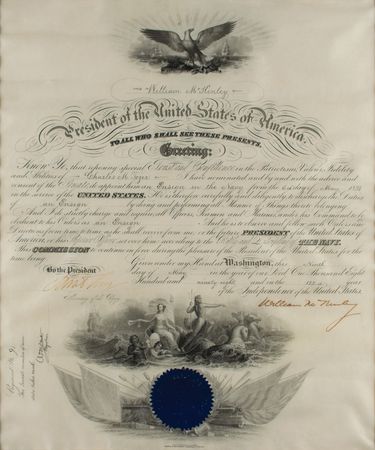 William McKinley
President of the United States of America.
TO ALL WHO SHALL SEE THESE PRESENTS,
Greeting:
Know Ye, that reposing special Trust and Confidence in the Patriotism, Valor, Fidelity
and Abilities of Charles M. I have nominated and by and with the advice and
consent of the Senate, do appoint him an Ensign in the Navy from the 6 day of May, 1898
in the service of the UNITED STATES. He is therefore carefully and diligently to discharge the Duties
of an Ensign by doing and performing all Manner of Things thereto belonging.
And I do strictly charge and require all Officers, Seamen and Marines, under his Command to be
obedient to his Orders as an Ensign. And he is to observe and follow such Orders and
Directions from time to time as he shall receive from me, or the future PRESIDENT of the United States of
America, or his Superior Officer set over him, according to the Rules and Discipline of THE NAVY.
This COMMISSION to continue in force during the pleasure of the President of the United States for the
time being.
Given under my Hand at Washington, this Ninth
By the President
day of May in the year of our Lord One Thousand Eight
Hundred and ninety eight and in the 122 year
of the Independence of the United States.
William McKinley
Secretary of the Navy